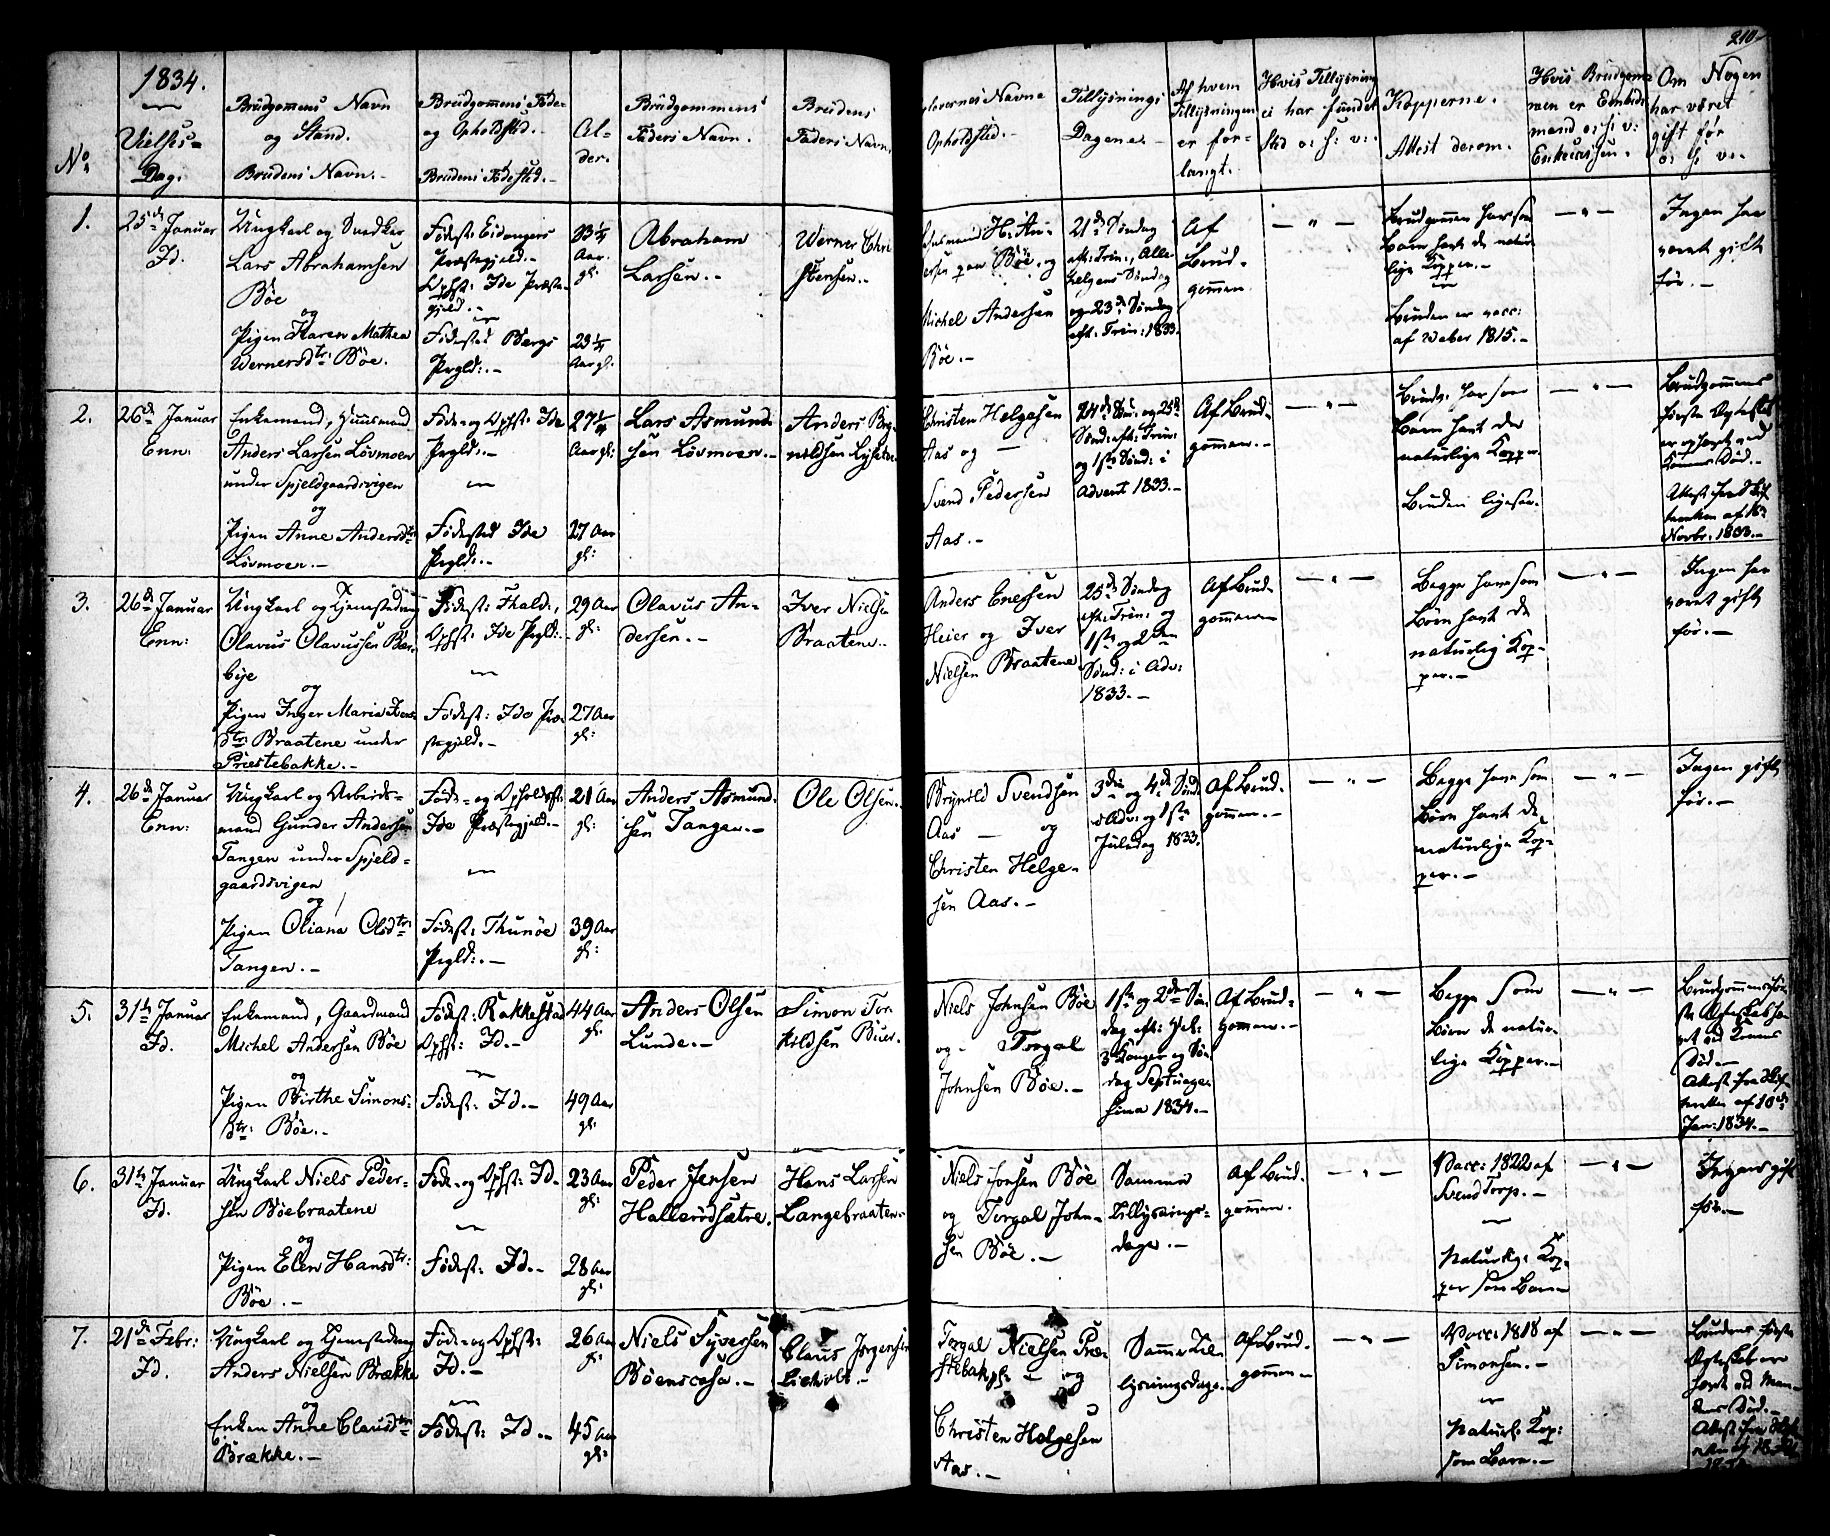 210
1834.
No.
Vielses-
Dag.
Brudgommens Navn
og Stand.
Brudens Navn.-
Brudgommens Føde-
og Opholdsted.
Brudens Fødested.-
Al-
der.
Brudgommens
Faders Navn.
Brudens
Faders Navn.
Forlovernes Navne
Opholdsted.-
Tillysnings-
Dagene.-
Af hvem
Tillysningen
er for-
langt.
Hvis Tillysning
ei har fundet
Sted o: s: v:
Kopperne.
Attest derom.
Hvis Brudgom-
men er Embeds-
mand o: s: v:
Enkecassen.
Om Nogen
har været
gift før
o: s: v:
1.
25de Januar
Id.
Ungkarl og Snedker
Lars Abrahamsen
Bøe
og
Pigen Karen Mathea
Wernersdtr: Bøe.
Fødest: Eidangers
Præstegjeld.-
Opst: Ide Præste-
gjeld.-
Fødested Bergs
Prgld:.-
23 1/4
Aar
gl:
29 1/4
Aar gl:
Abraham
Larsen.-
Werner Chri-
stensen.-
Huusmand H. An-
dersen paa Bøe, og
Michel Andersen
Bøe.-
21de Søndag
eft: Trin:, Alle-
helgens Søndag
og 23de Søndag
eft: Trin: 1833.
Af
Brud-
gommen.
— " —
Brudgommen har som
Barn havt de natur-
lige Kopper.-
Bruden er vacc:
af Weber 1815.-
— " —
Ingen har
været gift
før.-
2.
26de Januar
Enn:
Enkemand, Huusmand
Anders Larsen Løvmoen
under Spjeldgaardsvigen
og
Pigen Anne Andersdtr:
Løvmoen.-
Føde- og Opst: Ide
Prgld:.-
Fødested Ide
Prgld:.-
27 1/4
Aar gl:
27 Aar
gl:
Lars Asmund-
sen Løvmoen.-
Anders Bry-
nildsen
Christen Helgesen
Aas og —
Svend Pedersen
Aas.-
24de Sønd: og 25de
Sønd: eft: Trin:
og 1ste Sønd: i
Advent 1833.-
Af Brud-
gommen.-
— " —
Brudg: har som
Barn havt de
naturlige Kopper.
Bruden ligesaa.
— " —
Brudgommens
første Ægteskab
er ophævet ved
Konens Død.-
Attest fra Skif-
teretten af
Novbr: 1833.-
3.
26de Januar
Enn:
Ungkarl og Tjenestedreng
Olavus Olavussen Ber-
bye
og
Pigen Inger Maria Ivers-
dtr: Braatene under
Præstebakke.-
Fødest: Fhald:,
Opst: Ide Prgld:.-
Fødest: Ide Præ-
stegjeld.-
29 Aar
gl:
27 Aar
gl:
Olavus An-
dersen.-
Iver Nielsen
Braatene.-
Anders Enersen
Heier og Iver
Nielsen Braatene
25de Søndag
eft: Trin: og
1ste og 2den
Sønd: i Adv:
1833.-
Af Brud-
gommen
— " —
Begge have som
Børn havt de
naturlig Kop-
per.-
— " —
Ingen har
været gift
før.-
4.
26de Januar
Enn:
Ungkarl og Arbeids-
mand Gunder Andersen
Tangen under Spjeld-
gaardsvigen
og
Pigen Oliana Olsdtr:
Tangen.-
Føde- og Opholdsst:
Ide Præstegjeld.-
Fødest: Thunøe
Prgld:.-
21 Aar
gl:
39 Aar
gl:
Anders Asmund-
sen Tangen.-
Ole Olsen.-
Brynild Svendsen
Aas — og
Christen Helge-
sen Aas.-
3die og 4de Sønd:
i Adv: og 1ste
Juledag 1833.
Af Brud-
gommen.-
— " —
Begge have som
Børn havt de
naturlige Kop-
per.-
— " —
Ingen gift
før.-
5.
31te Januar
Id.
Enkemand, Gaardmand
Michel Andersen Bøe
og
Pigen Birthe Simons-
dtr: Bøe.-
Fødest: Rakkestad
Opst: Id.-
Fødest: Id.-
44 Aar
gl:
49 Aar
gl:
Anders Olsen
Lunde.-
Simon Tor-
kildsen Buer.
Niels Johnsen Bøe
og- Torgal
Johnsen Bøe.-
1ste og 2den Søn-
dag eft: Hel:
3 Konger og Søn-
dag Septuage-
sima 1834.-
Af Brud-
gommen.-
— " —
Begge som
Børn de natur-
lige Kopper.-
— " —
Brudgommens før-
ste Ægteskab hæ-
vet ved Konens
Død.-
Attest fra Skif-
teretten af 10de
Jan: 1834.-
6.
31te Januar
Id.
Ungkarl Niels Peder-
sen Bøebraatene
og
Pigen Elen Hansdtr:
Bøe.-
Føde- og Opst: Id.-
Fødest: Id.-
23 Aar
gl:
28 Aar
gl:
Peder Jensen
Hallerødsætre.
Hans Larsen
Langebraaten.
Niels Jonsen Bøe
og Torgal John-
sen Bøe.-
Samme
Tillysnings-
dage.-
Af Brud-
gommen.
— " —
Vacc: 1822 af
Svend Torp.-
Naturlige Kop-
per som Barn
— " —
Ingen gift
før.-
7.
21de Febr:
Id.
Ungkarl og Tjenestedreng
Anders Nielsen Brække
og
Enken Anne Clausdtr:
Brække.-
Føde- og Opst:
Id.-
Fødest: Id.-
26 Aar
gl:
45 Aar
gl:
Niels Syversen
Bøenscasa.-
Claus Jørgensen
Torgal Nielsen Præ-
stebakke — og
Christen Helgesen
Aas.-
Samme Til-
lysningsdage.-
Af Brud-
gommen-
— " —
Vacc: 1818 af
Simonsen.-
Naturl: Kop:
som Barn.-
— " —
Brudens første
Ægteskab er
hævet ved Man-
dens Død.-
Attest fra Skif-